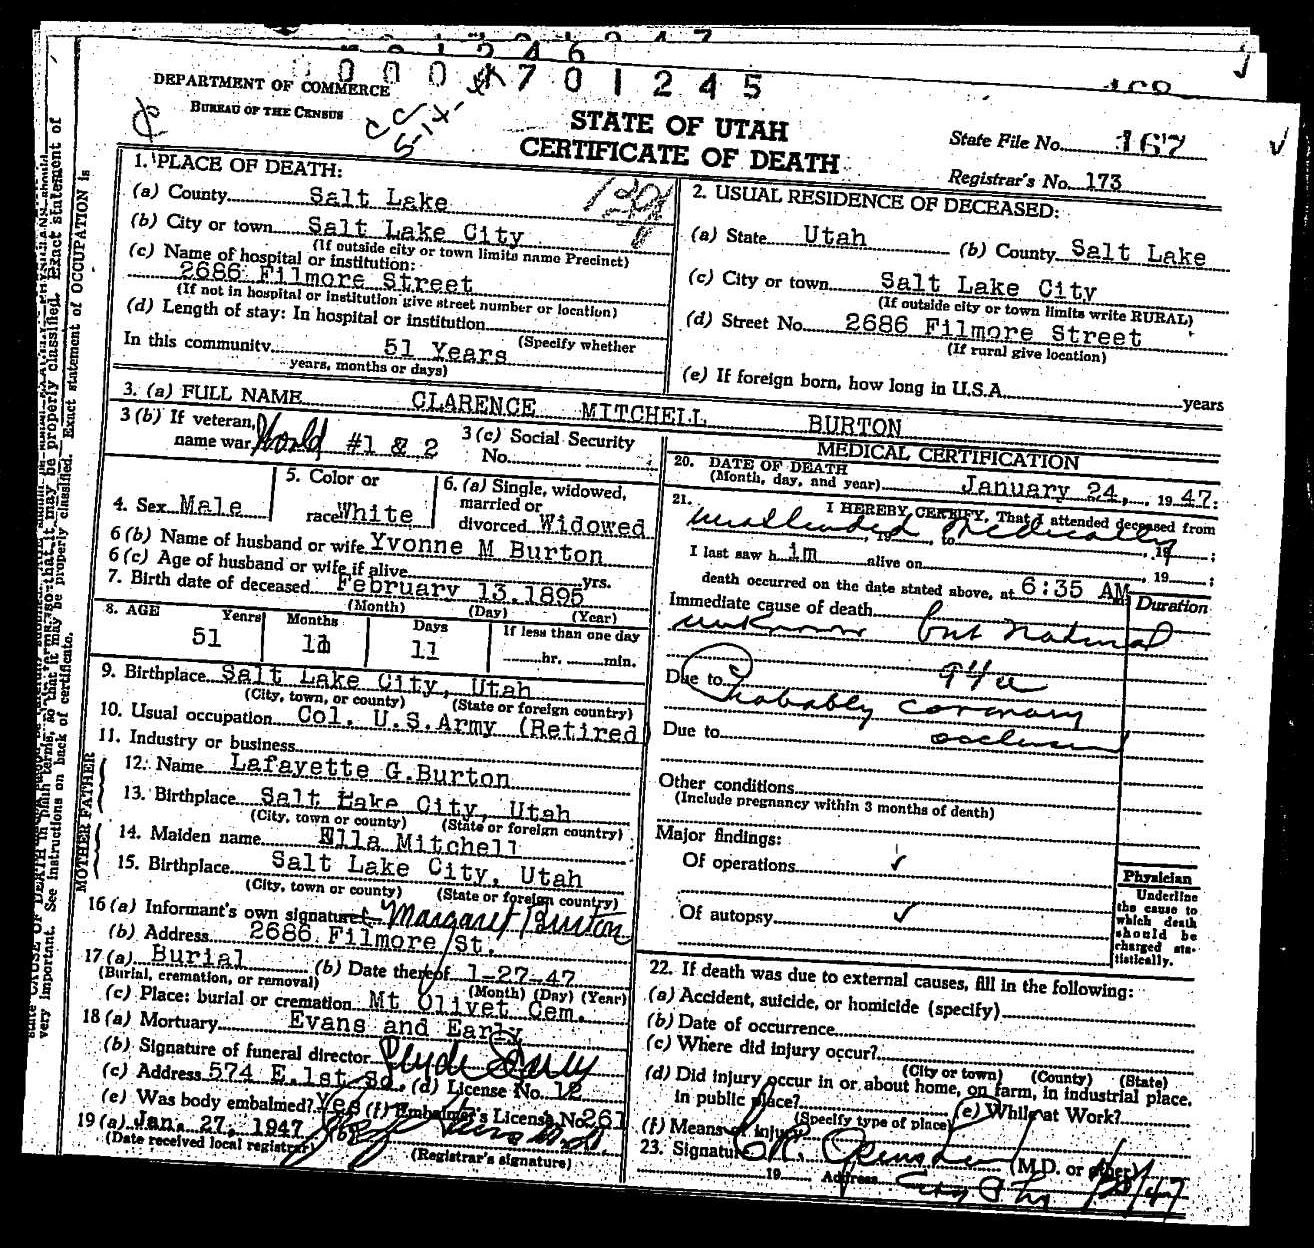 0 0 0 4 7 0 1 2 4 5
DEPARTMENT OF COMMERCE
BUREAU OF THE CENSUS
STATE OF UTAH
CERTIFICATE OF DEATH
State File No. 167
Registrar's No. 173
1. PLACE OF DEATH:
(a) County Salt Lake
(b) City or town Salt Lake City
(If outside city or town limits name Precinct)
(c) Name of hospital or institution:
2686 Filmore Street
(If not in hospital or institution give street number or location)
(d) Length of stay: In hospital or institution
(Specify whether
In this community 51 Years
years, months or days)
2. USUAL RESIDENCE OF DECEASED:
(a) State Utah (b) County Salt Lake
(c) City or town Salt Lake City
(If outside city or town limits write RURAL)
(d) Street No. 2686 Filmore Street
(If rural give location)
(e) If foreign born, how long in U.S.A. years
3. (a) FULL NAME CLARENCE MITCHELL BURTON
3 (b) If veteran, name war World #1 & 2
3 (c) Social Security No.
4. Sex Male
5. Color or race White
6. (a) Single, widowed, married or divorced Widowed
6 (b) Name of husband or wife Yvonne M Burton
6 (c) Age of husband or wife if alive yrs.
7. Birth date of deceased February 13, 1895
(Month) (Day) (Year)
8. AGE Years Months Days If less than one day
51 11 11 hr. min.
9. Birthplace Salt Lake City, Utah
(City, town, or county) (State or foreign country)
10. Usual occupation Col. U.S.Army (Retired
11. Industry or business
FATHER
12. Name Lafayette G.Burton
13. Birthplace Salt Lake City, Utah
(City, town or county) (State or foreign country)
MOTHER
14. Maiden name Ella Mitchell
15. Birthplace Salt Lake City, Utah
(City, town or county) (State or foreign country)
16 (a) Informant's own signature Margaret Burton
(b) Address 2686 Filmore St.
17 (a) Burial (b) Date thereof 1-27-47
(Burial, cremation, or removal) (Month) (Day) (Year)
(c) Place: burial or cremation Mt Olivet Cem.
18 (a) Mortuary Evans and Early
(b) Signature of funeral director
(c) Address 574 E.1st So. (d) License No. 12
(e) Was body embalmed? Yes (f) Embalmer's License No. 261
19 (a) Jan. 27, 1947
(Date received local registrar) (Registrar's signature)
MEDICAL CERTIFICATION
20. DATE OF DEATH
(Month, day, and year) January 24, 1947.
21. I HEREBY CERTIFY, That I attended deceased from
unattended medically 19 to , 19 ;
I last saw h im alive on , 19 ;
death occurred on the date stated above, at 6:35 AM
Immediate cause of death Duration
unknown but natural
Due to 94a
Probably coronary
Due to occlusion
Other conditions
(Include pregnancy within 3 months of death)
Major findings:
Of operations ✓
Of autopsy ✓
Physician
Underline
the cause to
which death
should be
charged sta-
tistically.
22. If death was due to external causes, fill in the following:
(a) Accident, suicide, or homicide (specify)
(b) Date of occurrence
(c) Where did injury occur?
(City or town) (County) (State)
(d) Did injury occur in or about home, on farm, in industrial place,
in public place? (e) While at Work?
(Specify type of place)
(f) Means of injury
23. Signature (M.D. or other)
19 Address